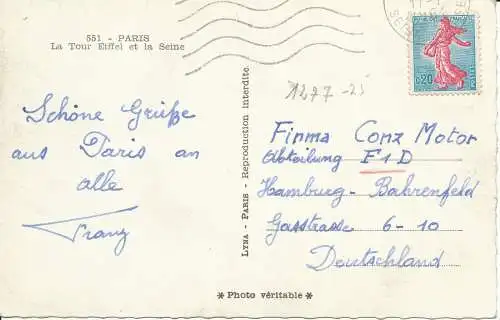 551 - PARIS
La Tour Eiffel et la Seine
0,20
1277-25
Schöne Grüße
aus Paris an
alle
Franz
LYNA - PARIS - Reproduction interdite.
Firma Conz Motor
Abteilung F1D
Hamburg-Bahrenfeld
Gasstrasse 6-10
Deutschland
* Photo véritable *